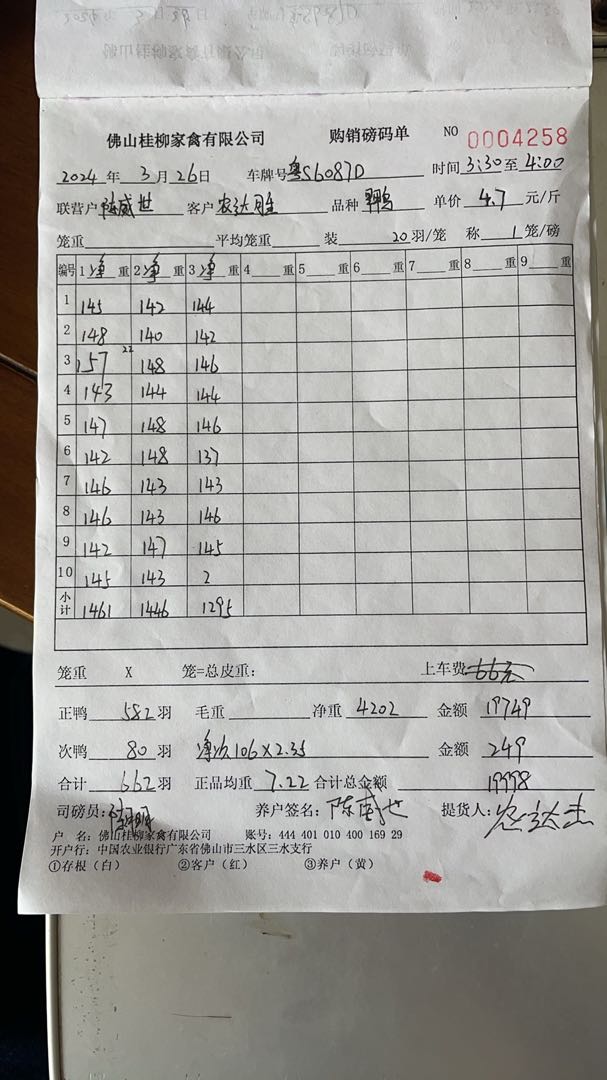 佛山桂柳家禽有限公司 购销磅码单 NO 0004258
2024年 3月26日 车牌号粤S6087D 时间3:30至4:00
联营户陈威世 客户农达 品种 单价4.7元/斤
笼重 平均笼重 装20羽/笼 称1笼/磅
编号 1净重 2净重 3净重 4重 5重 6重 7重 8重 9重
1 145 142 144
2 148 140 142
3 157 22 148 146
4 143 144 144
5 147 148 146
6 142 148 137
7 146 143 143
8 146 143 146
9 142 147 145
10 145 143 2
小计 1461 1446 1295
笼重 X 笼=总皮重: 上车费66元
正鸭582羽 毛重 净重4202 金额19749
次鸭80羽 净 106×2.35 金额249
合计662羽 正品均重7.22 合计总金额19998
司磅员: 养户签名:陈威世 提货人:农达
户 名:佛山桂柳家禽有限公司 账号:444 401 010 400 169 29
开户行:中国农业银行广东省佛山市三水区三水支行
①存根(白) ②客户(红) ③养户(黄)